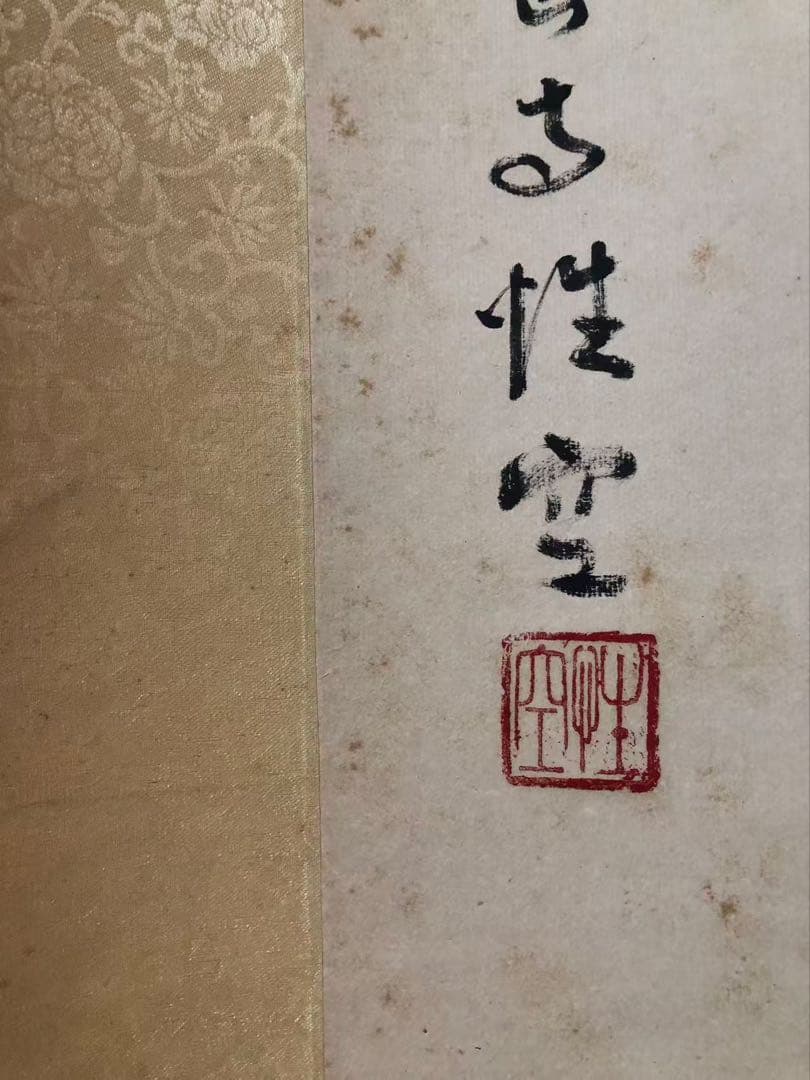 寺性空
性空